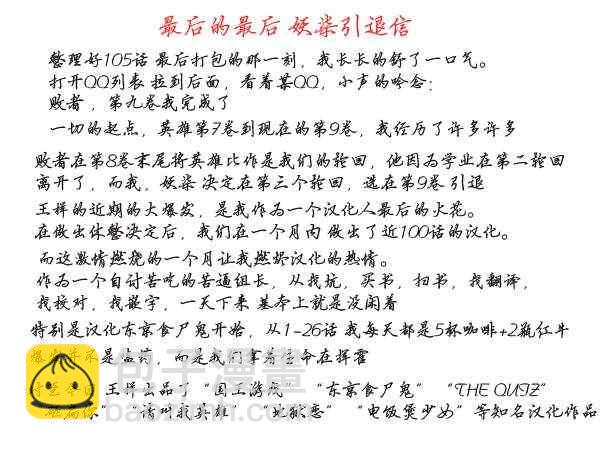 最后的最后 妖柒引退信
整理好105话 最后打包的那一刻，我长长的舒了一口气。
打开QQ列表 拉到后面，看着某QQ，小声的呤念：
败者，第九卷我完成了
一切的起点，英雄第7卷到现在的第9卷，我经历了许多许多
败者在第8卷末尾将英雄比作是我们的轮回，他因为学业在第二轮回
离开了，而我，妖柒 决定在第三个轮回，选在第9卷 引退
王样的近期的大爆发，是我作为一个汉化人最后的火花。
在做出休整决定后，我们在一个月内 做出了近100话的汉化。
而这激情燃烧的一个月让我燃烬汉化的热情。
作为一个自讨苦吃的苦逼组长，从我坑，买书，扫书，我翻译，
我校对，我嵌字，一天下来 基本上就是没闲着
特别是汉化东京食尸鬼开始，从1-26话 我每天都是5杯咖啡+2瓶红牛
不是 ，而是我们拿着生命在挥霍
王样出品了“国王游戏” “东京食尸鬼” “THE QUIZ”
你” 请叫我英雄” “地狱恋” “电饭煲少女”等知名汉化作品
包子漫畫
baozimh.com